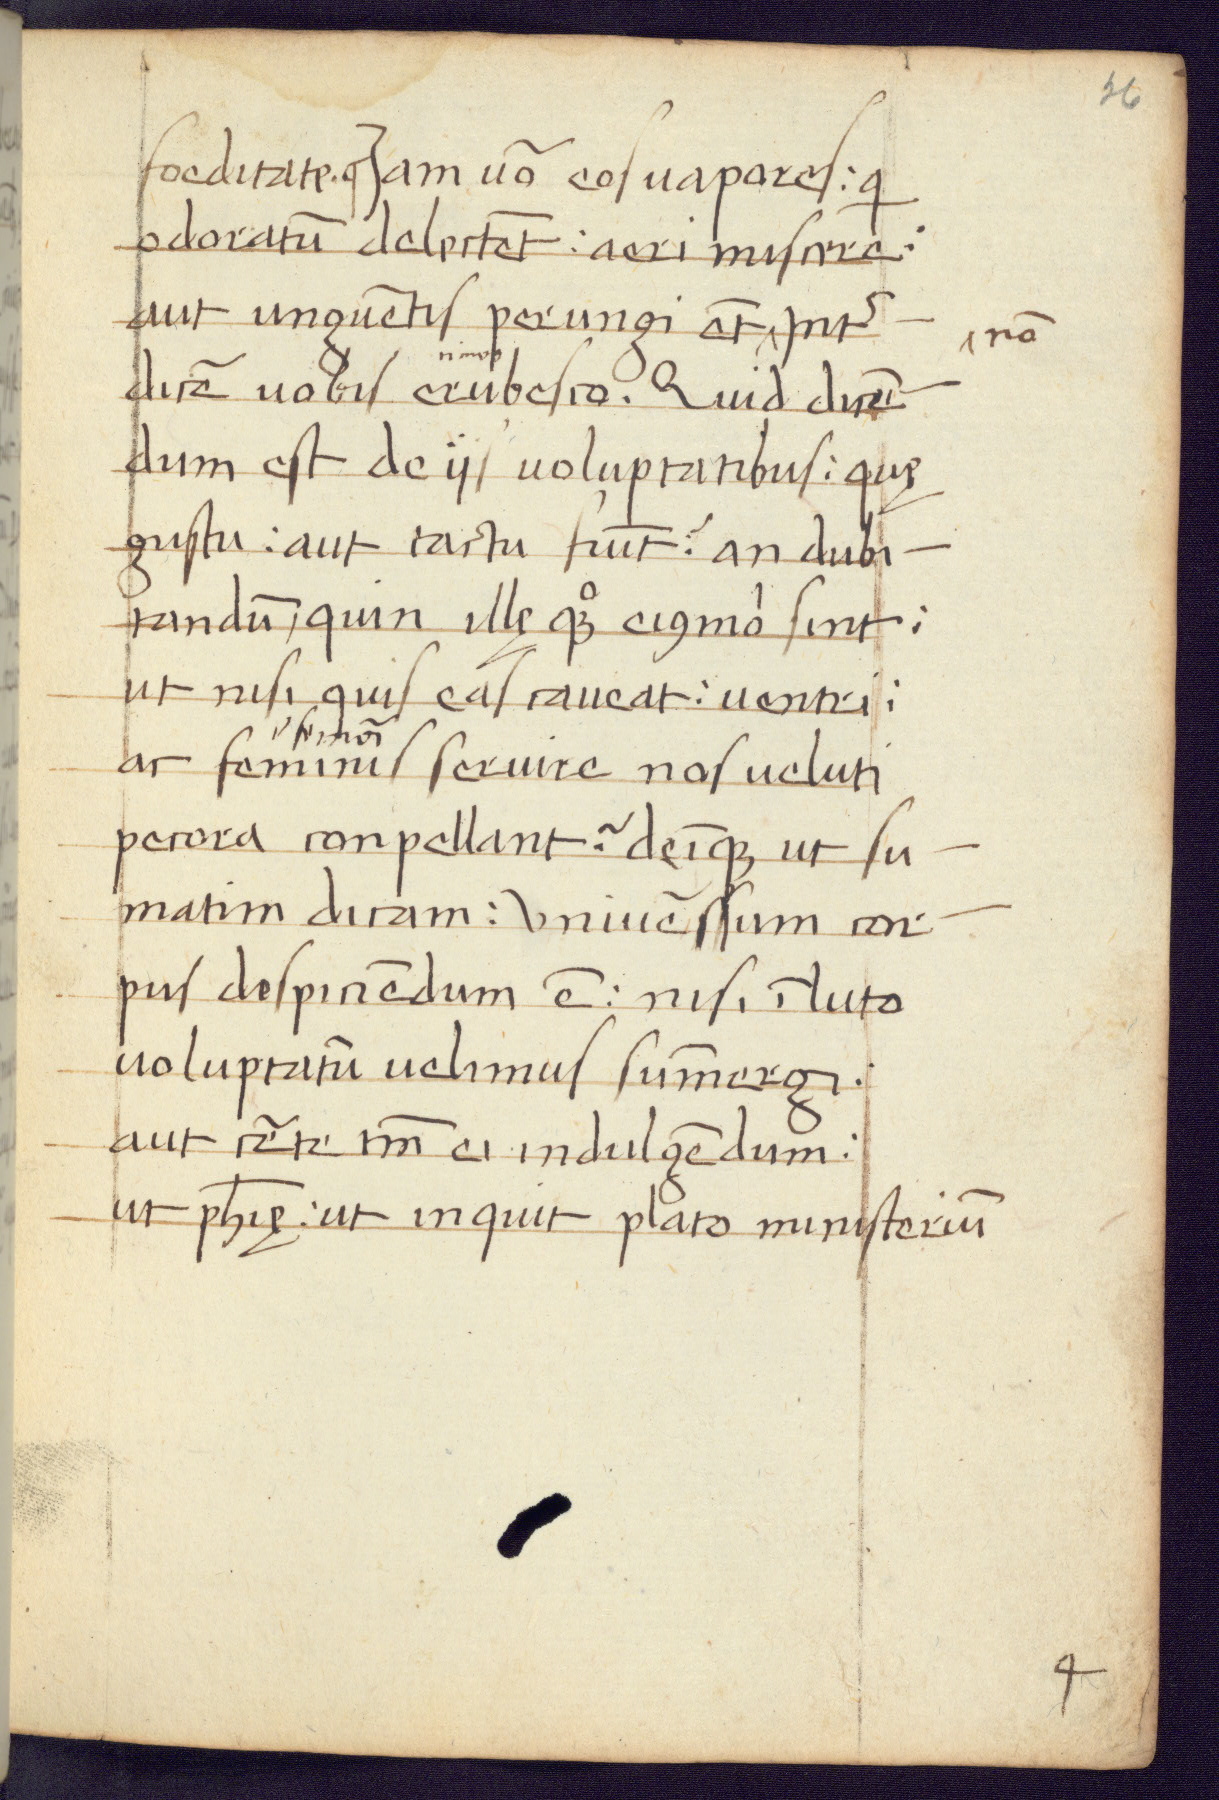 26
foeditate. Jam uō eos uapores: q
odoratū delectēt: aeri miscere:
aut unguētis perungi ēt ‸ Jnt᷑ - ‸ nō
dicē uobis erubesco. Quid dicē-
dum est de ijs uoluptatibus: quę
gustu: aut tactu fiūt? an dubi-
tandū, quin illę qꝫ eiꝰmo͛ sint:
ut nisi quis eas caueat: uentri:
ac feminis seruire nos ueluti
pecora conpellant? deīqꝫ ut su-
matim dicam: Vniuēssum cor-
pus despiciēdum ē: nisi ī luto
uoluptatū uelimus sūmergi.
aut cēte tm̄ ei indulgēdum:
ut ph̄ię: ut inquit plato ministeriū